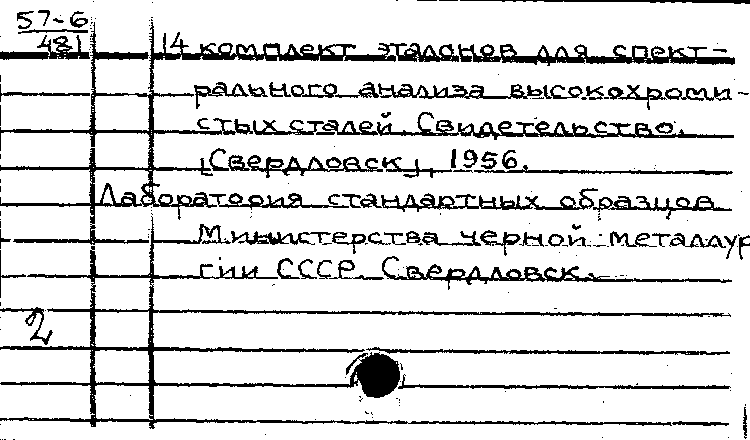 57-6
481
14 комплект эталонов для спект-
рального анализа высокохроми-
стых сталей. Свидетельство.
[Свердловск], 1956.
Лаборатория стандартных образцов
Министерства черной металлур
гии СССР. Свердловск.
2